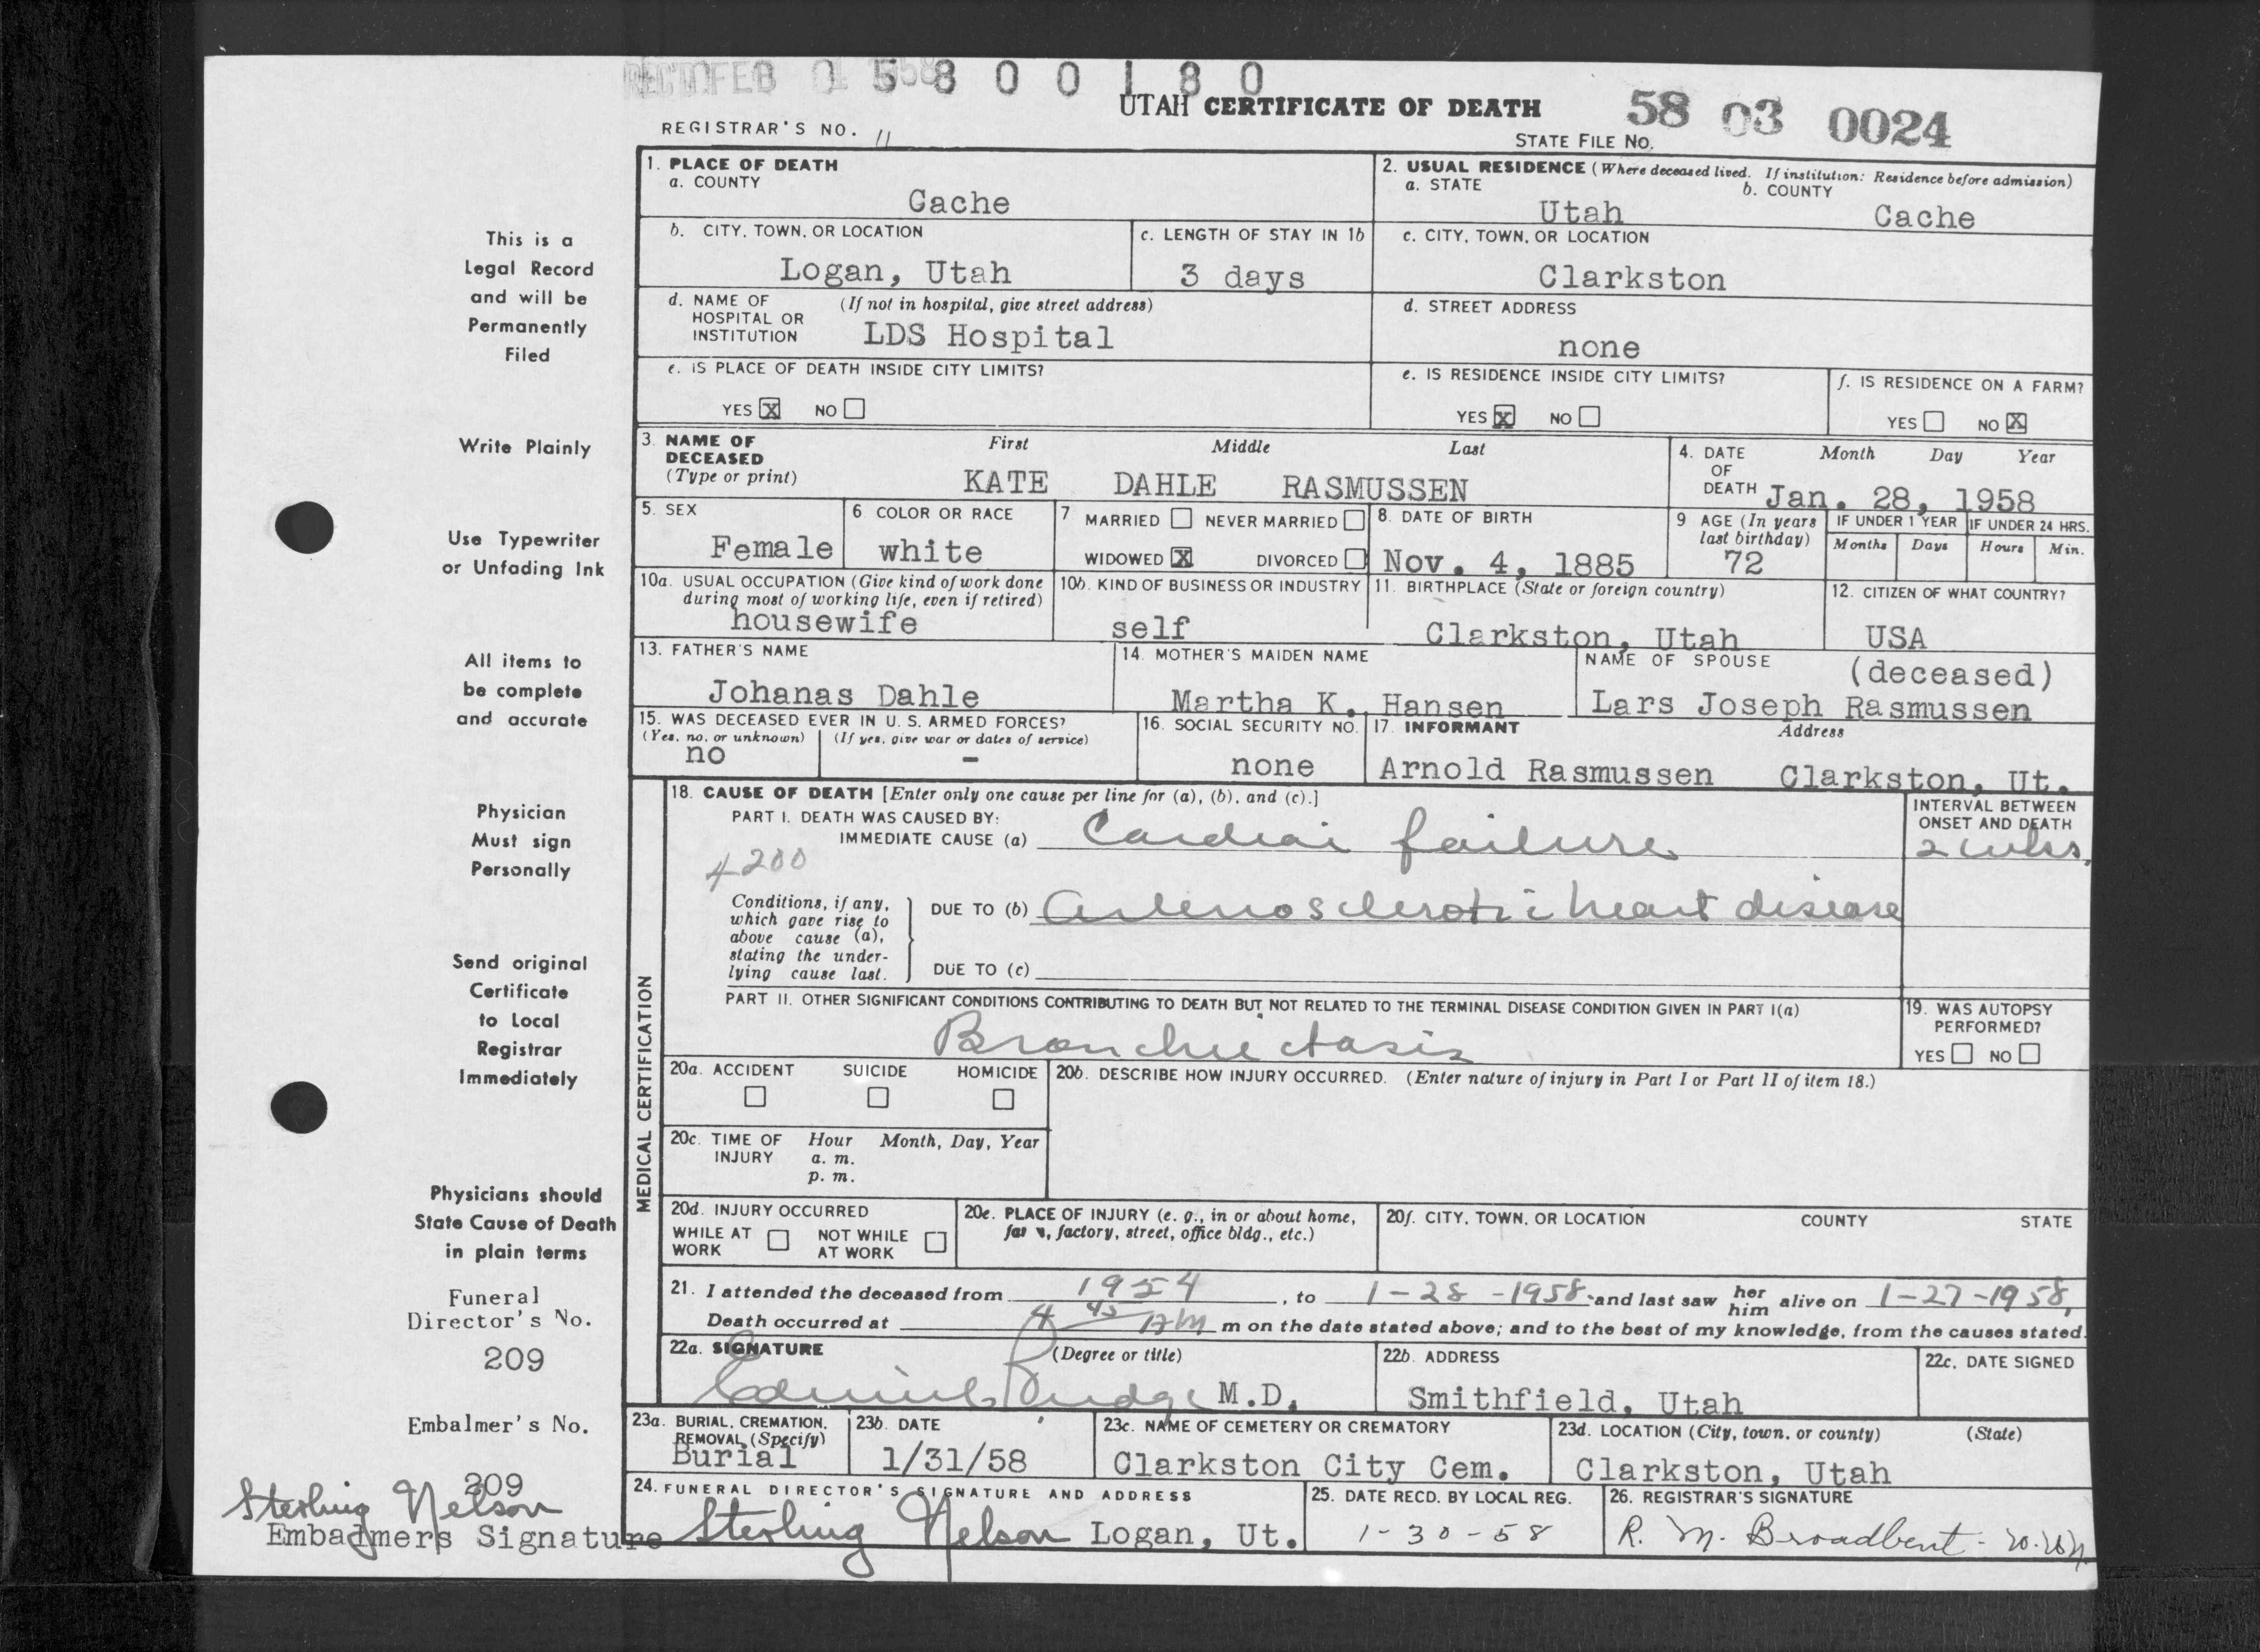 REC'D FEB 1 1958
0 1 5 8 0 0 1 8 0
UTAH CERTIFICATE OF DEATH
58 03 0024
REGISTRAR'S NO. 11
STATE FILE No.
1. PLACE OF DEATH
a. COUNTY
Cache
2. USUAL RESIDENCE (Where deceased lived. If institution: Residence before admission)
a. STATE b. COUNTY
Utah Cache
b. CITY, TOWN, OR LOCATION
Logan, Utah
c. LENGTH OF STAY IN 1b
3 days
c. CITY, TOWN, OR LOCATION
Clarkston
d. NAME OF HOSPITAL OR INSTITUTION (If not in hospital, give street address)
LDS Hospital
d. STREET ADDRESS
none
e. IS PLACE OF DEATH INSIDE CITY LIMITS?
YES X NO
e. IS RESIDENCE INSIDE CITY LIMITS?
YES X NO
f. IS RESIDENCE ON A FARM?
YES NO X
3. NAME OF DECEASED (Type or print)
First Middle Last
KATE DAHLE RASMUSSEN
4. DATE OF DEATH Month Day Year
Jan. 28, 1958
5. SEX
Female
6 COLOR OR RACE
white
7 MARRIED NEVER MARRIED
WIDOWED X DIVORCED
8. DATE OF BIRTH
Nov. 4, 1885
9 AGE (In years last birthday)
72
IF UNDER 1 YEAR
Months Days
IF UNDER 24 HRS.
Hours Min.
10a. USUAL OCCUPATION (Give kind of work done during most of working life, even if retired)
housewife
10b. KIND OF BUSINESS OR INDUSTRY
self
11. BIRTHPLACE (State or foreign country)
Clarkston, Utah
12. CITIZEN OF WHAT COUNTRY?
USA
13. FATHER'S NAME
Johanas Dahle
14. MOTHER'S MAIDEN NAME
Martha K. Hansen
NAME OF SPOUSE
(deceased)
Lars Joseph Rasmussen
15. WAS DECEASED EVER IN U. S. ARMED FORCES?
(Yes, no, or unknown) (If yes, give war or dates of service)
no -
16. SOCIAL SECURITY NO.
none
17. INFORMANT Address
Arnold Rasmussen Clarkston, Ut.
MEDICAL CERTIFICATION
18. CAUSE OF DEATH [Enter only one cause per line for (a), (b), and (c).]
PART I. DEATH WAS CAUSED BY:
IMMEDIATE CAUSE (a) Cardiac failure
INTERVAL BETWEEN ONSET AND DEATH
2 wks.
4200
Conditions, if any, which gave rise to above cause (a), stating the underlying cause last.
DUE TO (b) Arteriosclerotic heart disease
DUE TO (c)
PART II. OTHER SIGNIFICANT CONDITIONS CONTRIBUTING TO DEATH BUT NOT RELATED TO THE TERMINAL DISEASE CONDITION GIVEN IN PART I(a)
Bronchiectasis
19. WAS AUTOPSY PERFORMED?
YES NO
20a. ACCIDENT SUICIDE HOMICIDE
20b. DESCRIBE HOW INJURY OCCURRED. (Enter nature of injury in Part I or Part II of item 18.)
20c. TIME OF INJURY Hour Month, Day, Year
a. m.
p. m.
20d. INJURY OCCURRED
WHILE AT WORK NOT WHILE AT WORK
20e. PLACE OF INJURY (e. g., in or about home, farm, factory, street, office bldg., etc.)
20f. CITY, TOWN, OR LOCATION COUNTY STATE
21. I attended the deceased from 1954, to 1-28-1958 and last saw her him alive on 1-27-1958,
Death occurred at 4 45 AM m on the date stated above; and to the best of my knowledge, from the causes stated.
22a. SIGNATURE (Degree or title)
Budge M.D.
22b. ADDRESS
Smithfield, Utah
22c. DATE SIGNED
23a. BURIAL, CREMATION, REMOVAL (Specify)
Burial
23b. DATE
1/31/58
23c. NAME OF CEMETERY OR CREMATORY
Clarkston City Cem.
23d. LOCATION (City, town, or county) (State)
Clarkston, Utah
24. FUNERAL DIRECTOR'S SIGNATURE AND ADDRESS
Sterling Nelson Logan, Ut.
25. DATE RECD. BY LOCAL REG.
1-30-58
26. REGISTRAR'S SIGNATURE
R. M. Broadbent
This is a
Legal Record
and will be
Permanently
Filed
Write Plainly
Use Typewriter
or Unfading Ink
All items to
be complete
and accurate
Physician
Must sign
Personally
Send original
Certificate
to Local
Registrar
Immediately
Physicians should
State Cause of Death
in plain terms
Funeral
Director's No.
209
Embalmer's No.
209
Sterling Nelson
Embalmers Signature